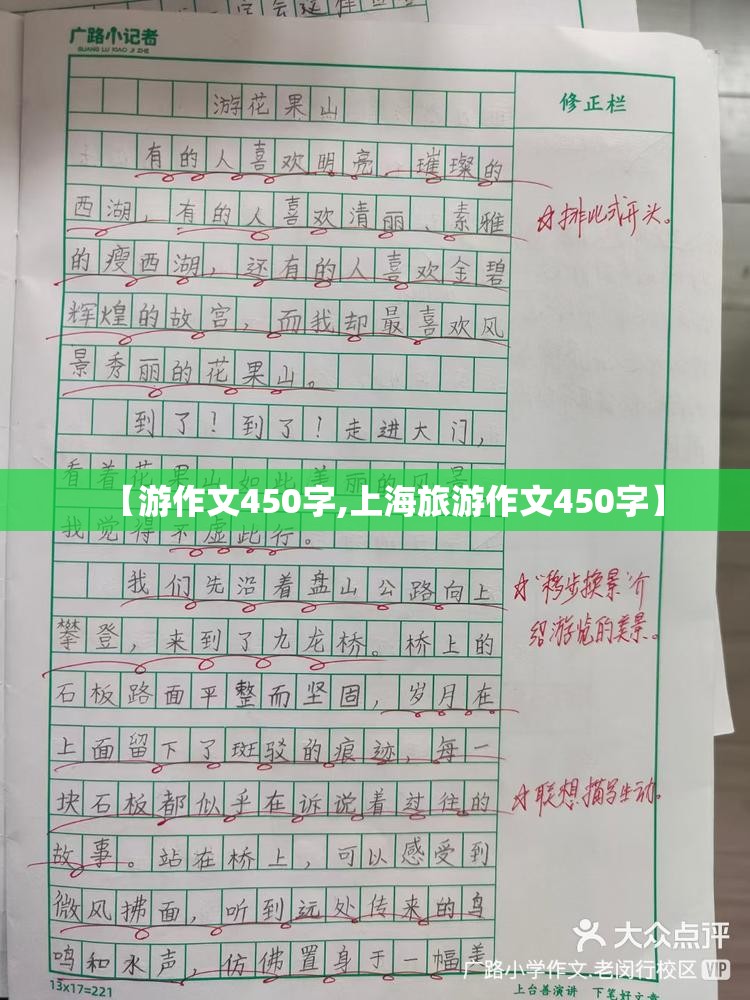 广路小记者
GUANG LU XIAO JI ZHE
游花果山
修正栏
有的人喜欢明亮、璀璨的
西湖，有的人喜欢清丽、素雅
☆排比式开头。
的瘦西湖，还有的人喜欢金碧
辉煌的故宫，而我却最喜欢风
景秀丽的花果山。
到了！到了！走进大门，
看着花果山如此美丽的风景
【游作文450字,上海旅游作文450字】
我觉得不虚此行。
我们先沿着盘山公路向上
☆"移步换景"介
绍游览的美景。
攀登，来到了九龙桥。桥上的
石板路面平整而坚固，岁月在
上面留下了斑驳的痕迹，每一
块石板都似乎在诉说着过往的
☆联想描写生动。
故事。站在桥上，可以感受到
微风拂面，听到远处传来的鸟
鸣和水声，仿佛置身于一幅美
大众点评
广路小学作文.老闵行校区 VIP
13x17=221
上台善演讲 下笔好文章